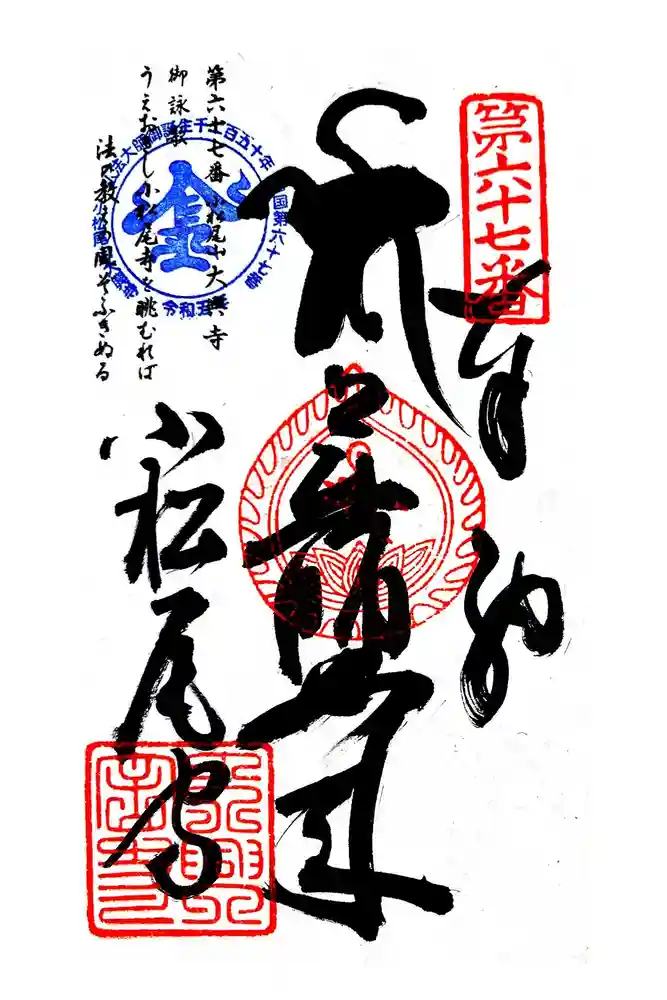 第六十七番
奉納
薬師如来
小松尾寺
第六十七番 小松尾山大興寺
御詠歌
うえおきし小松尾寺を眺むれば
法の教えの風ぞふきぬる
弘法大師御誕生千二百五十年
四国第六十七番
小松尾山
令和五年